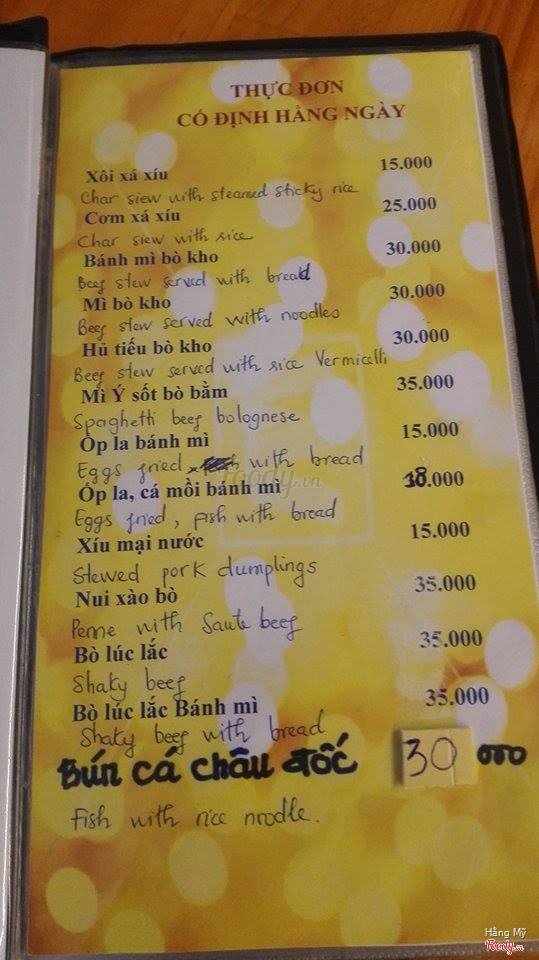 THỰC ĐƠN
CỐ ĐỊNH HẰNG NGÀY
Xôi xá xíu 15.000
Char siew with steamed sticky rice
Cơm xá xíu 25.000
Char siew with rice
Bánh mì bò kho 30.000
Beef stew served with bread
Mì bò kho 30.000
Beef stew served with noodles
Hủ tiếu bò kho 30.000
Beef stew served with rice Vermicalli
Mì Ý sốt bò bằm 35.000
Spaghetti beef bolognese
Ốp la bánh mì 15.000
Eggs fried with bread
Ốp la, cá mồi bánh mì 18.000
Eggs fried, fish with bread
Xíu mại nước 15.000
Stewed pork dumplings
Nui xào bò 35.000
Penne with Saute beef
Bò lúc lắc 35.000
Shaky beef
Bò lúc lắc Bánh mì 35.000
Shaky beef with bread
Bún cá châu đốc 30 000
Fish with rice noodle.
foody.vn
Hằng Mỹ
Foody.vn